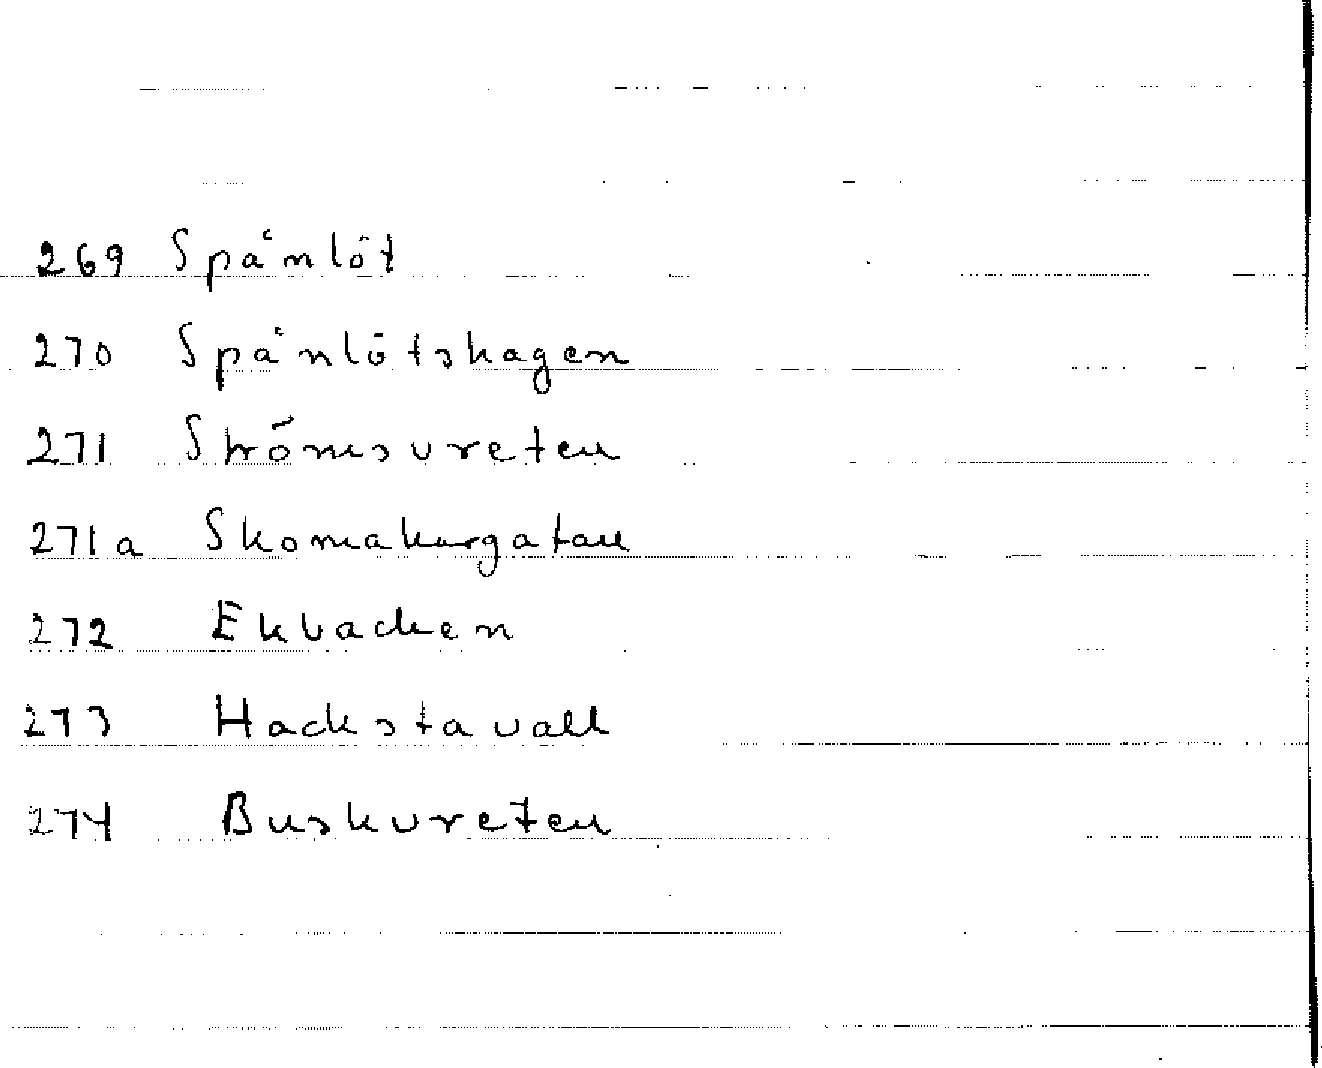 269 Spånlöt
270 Spånlötshagen
271 Strömsvreten
271a Skomakargatan
272 Ekbacken
273 Hackstavall
274 Buskvreten